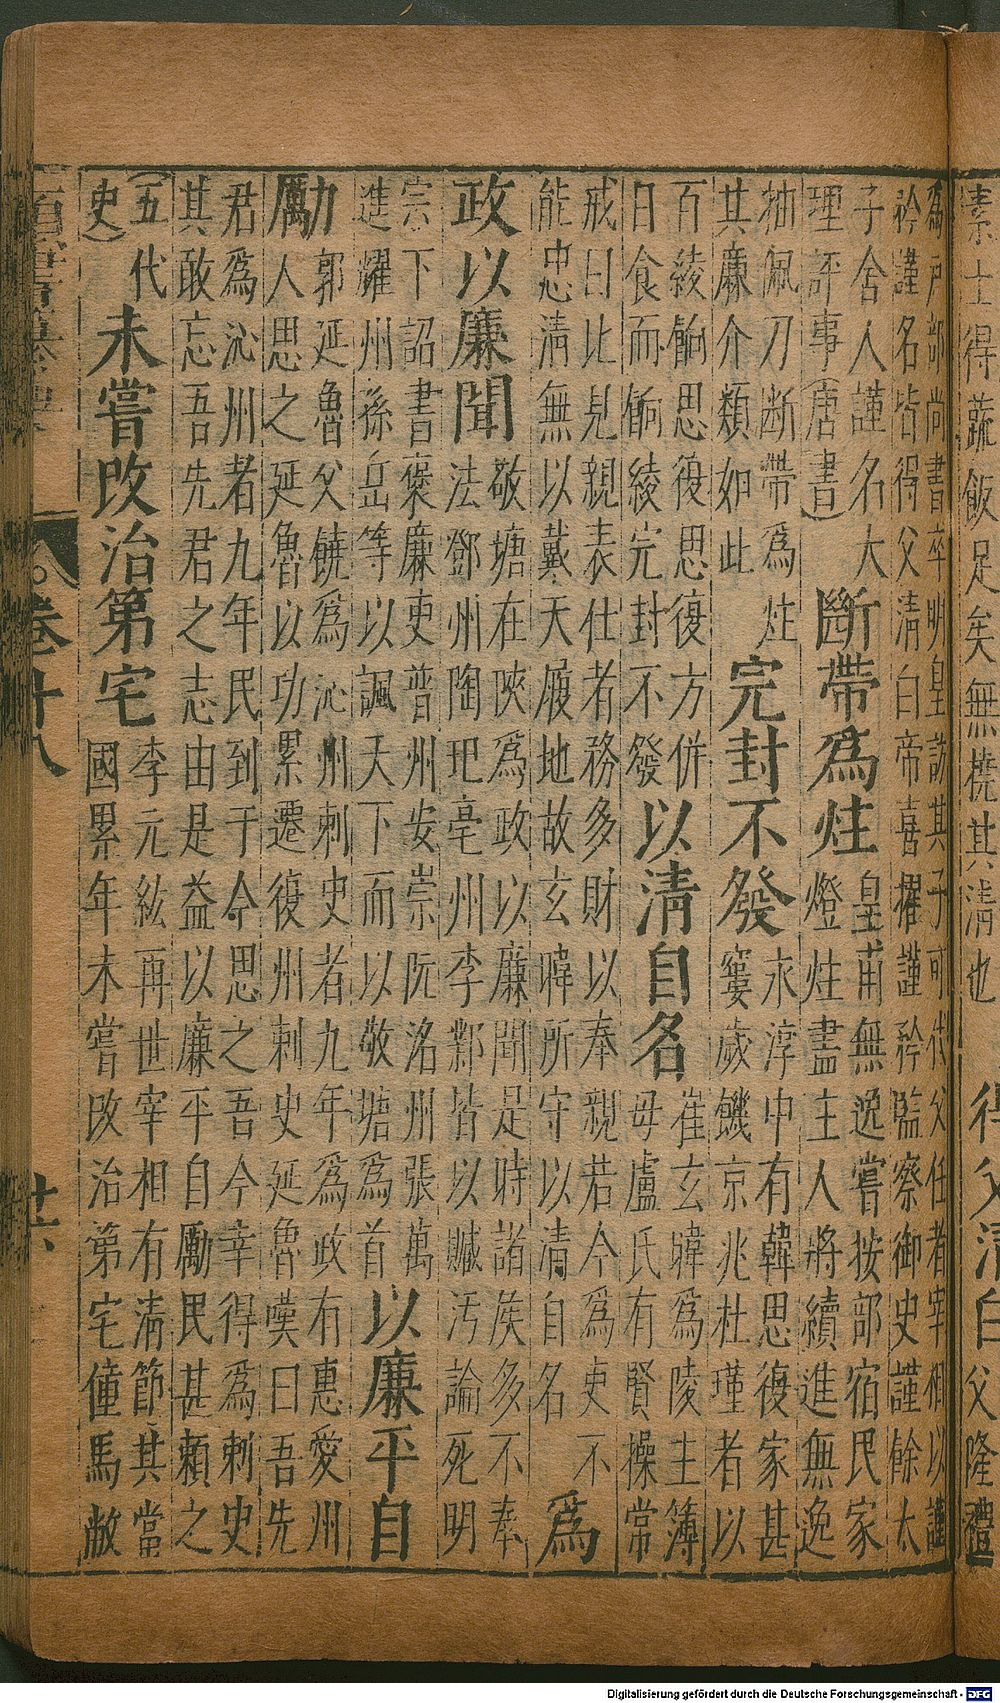 素士得蔬飯足矣無撓其清也
得父清白
父隆禮
為戶部尚書卒明皇訪其子可代父任者宰相以謹
衿謹名皆得父清白帝喜擢謹衿監察御史謹餘太
子舍人謹名大
理評事(唐書)
斷帶爲炷
皇甫無逸嘗按部宿民家
燈炷盡主人將續進無逸
抽佩刀断帶爲炷
其廉介類如此
完封不發
永淳中有韓思復家甚
窶歲饑京兆杜瑾者以
百綾餉思復思復方併
日食而餉綾完封不發
以清自名
崔玄暐爲陵主簿
母盧氏有賢操常
戒曰比見親表仕者務多財以奉親若今爲吏不
能忠清無以戴天履地故玄暐所守以清自名
爲
政以廉聞
敬塘在陝爲政以廉聞是時諸侯多不奉
法鄧州陶玘亳州李鄴皆以贓汚論死明
宗下詔書褒廉吏普州安崇阮洺州張萬
進耀州孫岳等以諷天下而以敬塘爲首
以廉平自
勵
郭延魯父饒爲沁州刺史者九年爲政有惠愛州
人思之延魯以功累遷復州刺史延魯嘆曰吾先
君爲沁州者九年民到于今思之吾今幸得爲刺史
其敢忘吾先君之志由是益以廉平自勵民甚頼之
(五代
史)
未嘗改治第宅
李元紘再世宰相有淸節其當
國累年未嘗改治第宅僮馬敝
卷廿八
廿六
Digitalisierung gefördert durch die Deutsche Forschungsgemeinschaft - DFG